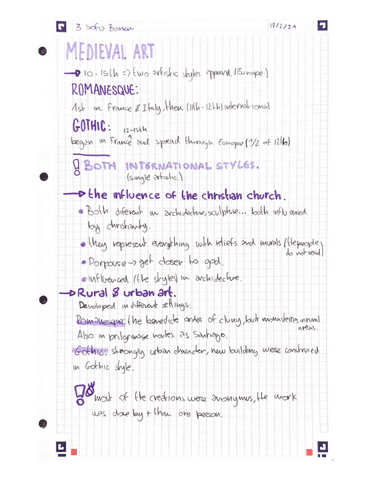 3 Sofia 19/2/24
MEDIEVAL ART
→ 10-15th => two artistic styles appeard (Europe)
ROMANESQUE:
1st in France & Italy, then (11th-12th) international
GOTHIC: 12-15th
began in France and spread through Europe (1/2 of 12th)
! BOTH INTERNATIONAL STYLES.
(single artistic)
→ the influence of the christian church.
• Both diferent in architecture, sculpture... both influenced
by christianity.
• they represent everything with reliefs and murals (the people
do not read)
• Porpouse → get closer to god.
• influenced (the styles) in architecture.
→ Rural & urban art.
Developed in different settings.
Romanesque: the benedicte order of cluny, built monasteries in rural
areas.
Also in pilgrimage routes as Santiago.
Gothic: strongly urban character, new building were construed
in Gothic style.
! most of the creations were anonymus, the work
was done by + than one person.